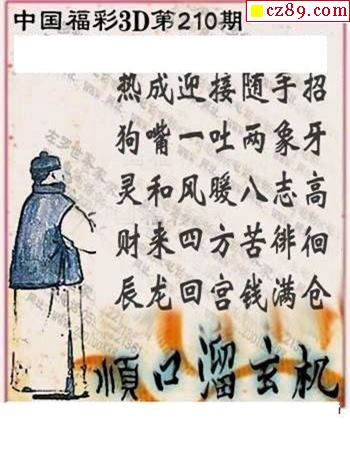 cz89.com
中国福彩3D第210期
热成迎接随手招
狗嘴一吐两象牙
灵和风暖八志高
财来四方苦徘徊
辰龙回宫钱满仓
顺口溜玄机